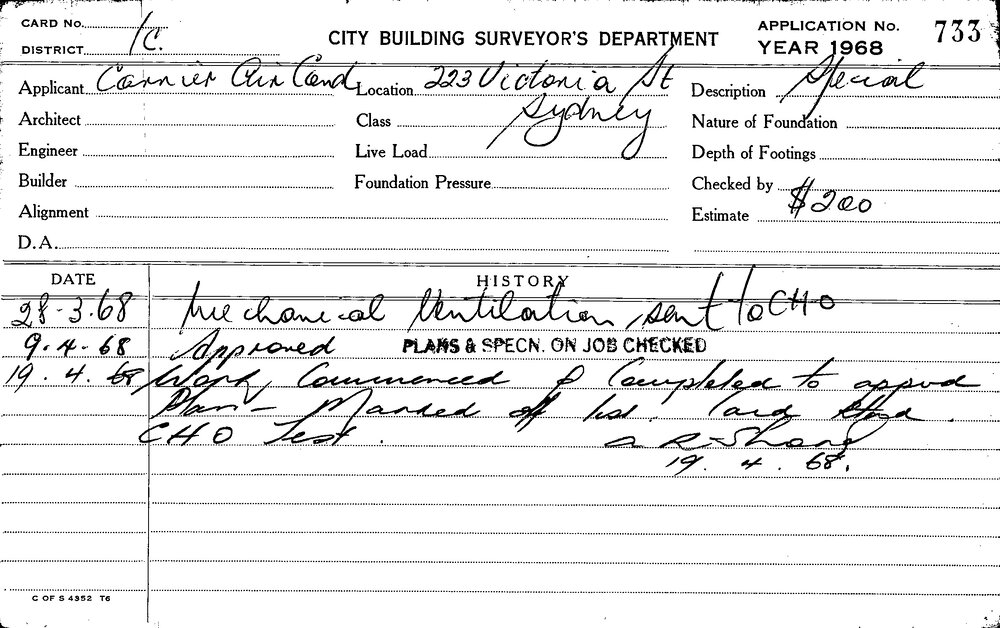 CARD No.
DISTRICT 1C.
CITY BUILDING SURVEYOR'S DEPARTMENT
APPLICATION No. 733
YEAR 1968
Applicant Carrier Air Cond Location 223 Victoria St Description Special
Sydney
Architect Class Nature of Foundation
Engineer Live Load Depth of Footings
Builder Foundation Pressure Checked by
Alignment Estimate $200
D.A.
DATE HISTORY
28-3-68 Mechanical Ventilation, sent to CHO
9.4.68 Approved PLANS & SPECN. ON JOB CHECKED
19.4.68 Work Commenced & Completed to appvd
Plan - Marked off list. Card
CHO Test.
19.4.68.
C OF S 4352 T6